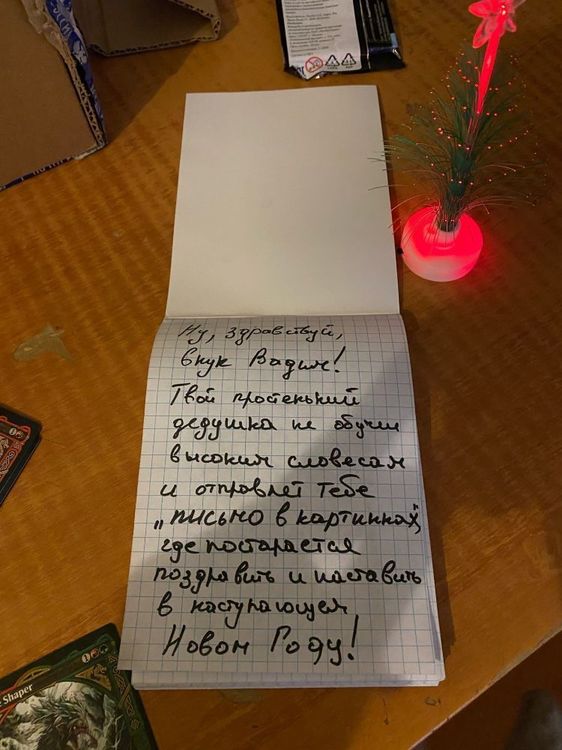 Ну, здравствуй,
внук Вадим!
Твой простенький
дедушка не обучен
высоким словесам
и отправлет тебе
„письмо в картинках",
где постарается
поздравить и наставить
в наступающем
Новом Году!
Shaper